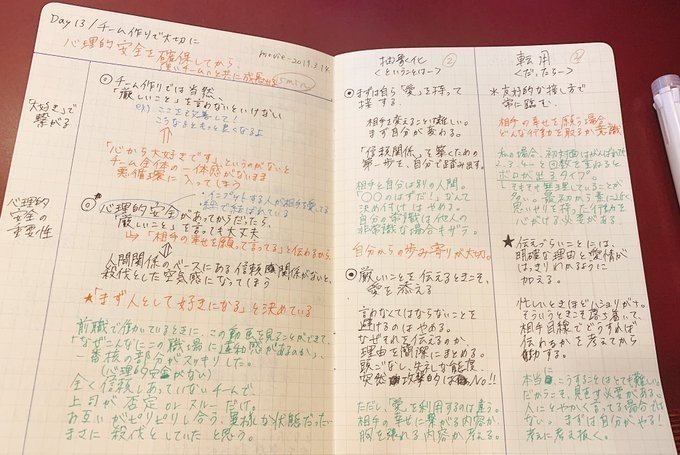 Day 13 / チーム作りで大切に
心理的安全を確保してから、
movie-2019.3.14.
5min
"大好き"で
繋がる
◎ チーム作りでは当然、
「厳しいこと」を言わないといけない
ex) ここを改善して!
こうなるともっと良くなるよ
「心から大好きです」というのがないと
チーム全体の一体感がないまま
悪循環に入ってしまう
心理的
安全の
重要性
◎ 心理的安全があってからだったら、
「厳しい」を言っても大丈夫
→「相手の幸せを願って言ってる」と伝わるから、
人間関係のベースにある信頼関係がないと、
殺伐とした空気感になってしまう
★「まず人として好きになる」と決めている
前職で働いているときに、この動画を見ることができて、
「なぜこんなにこの職場に違和感があるのか」、
一番核の部分がスッキリした。
(心理的安全がない)
全く信頼しあっていないチームで、
上司が否定 or スルーだけ。
お互いがピリピリし合う、異様な状態だった…
まさに殺伐としていたと思う。
抽象化 ②
<ということは〜>
◎ まずは自ら「愛」を持って
接する。
相手を変えることは難しい。
まず自分が変わる。
「信頼関係」を築くための
第一歩を、自分で踏み出す。
相手と自分は別の人間。
「○○のはずだ!」なんて
決め付けではやめる。
自分の常識は他人の
非常識な場合もザラ。
自分からの歩み寄りが大切。
◎ 厳しいことを伝えるときこそ、
愛を添える
言わなくてはならないことを
避けるのはやめる。
なぜそれを伝えるのか、
理由を簡潔にまとめる。
頭ごなし、失礼な態度、
突然攻撃的はNo!!
ただし「愛」を利用するのは違う。
相手の幸せに繋がる内容か、
胸を張れる内容か考える。
転用 ④
<だったら〜>
＊友好的な接し方で
常に臨む。
相手の幸せを願う場合、
どんな行動を取るか意識
ボロが出るタイプ。
思いやりを持った行動を
心がける必要がある。
★ 伝えづらいことには、
明確な理由と愛情が
はっきりわかるように
加える。
忙しいときほどハショりがち。
そういうときこそ落ち着いて、
相手目線でどうすれば
伝わるかを考えてから
動する。
本当にこうすることはとても難しい。
だからこそ、見直す必要がある。
ない。まずは自分がやる!
考えに考え抜く。